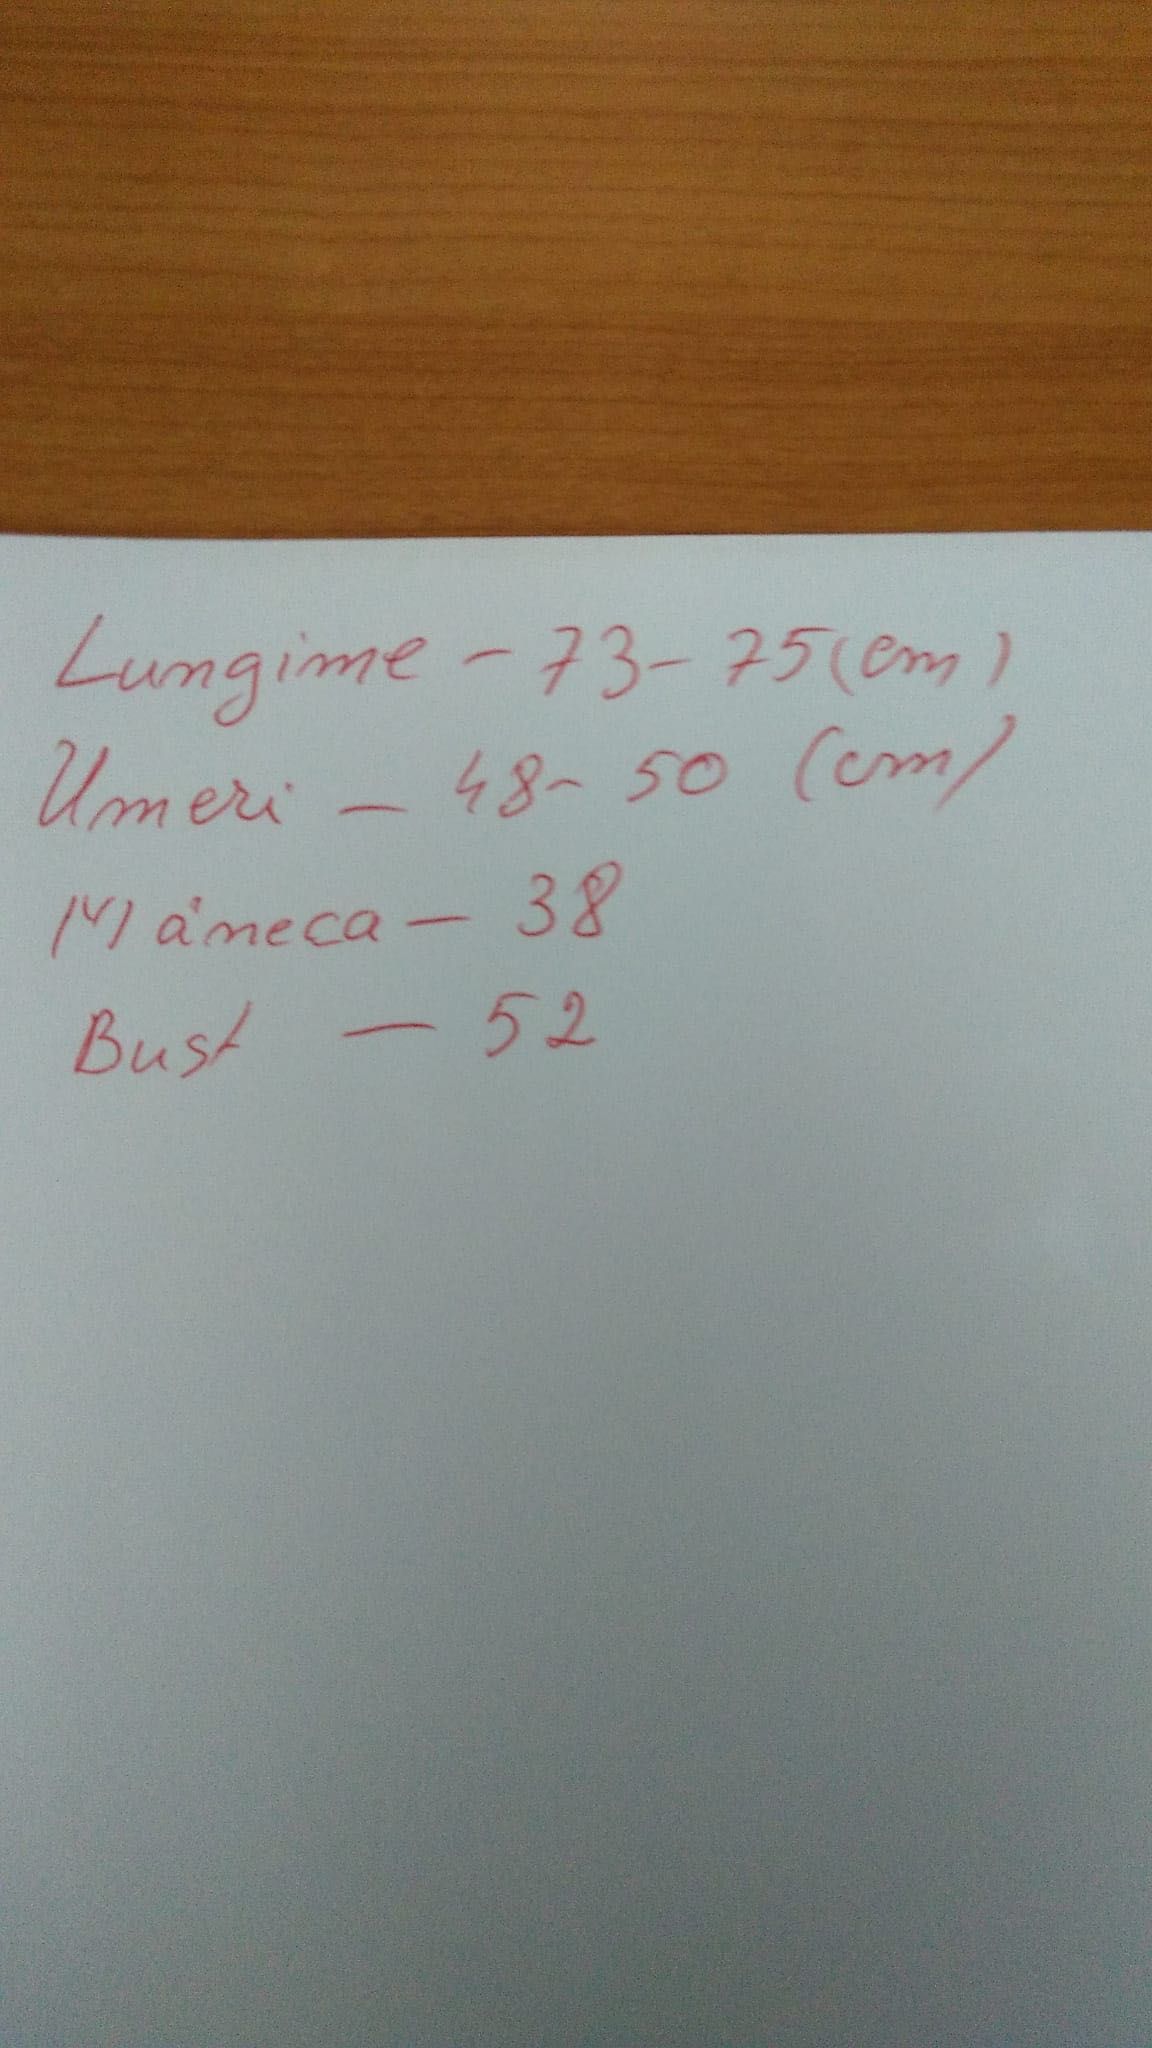 Lungime - 73 - 75 (cm)
Umeri - 48 - 50 (cm)
Mâneca - 38
Bust - 52